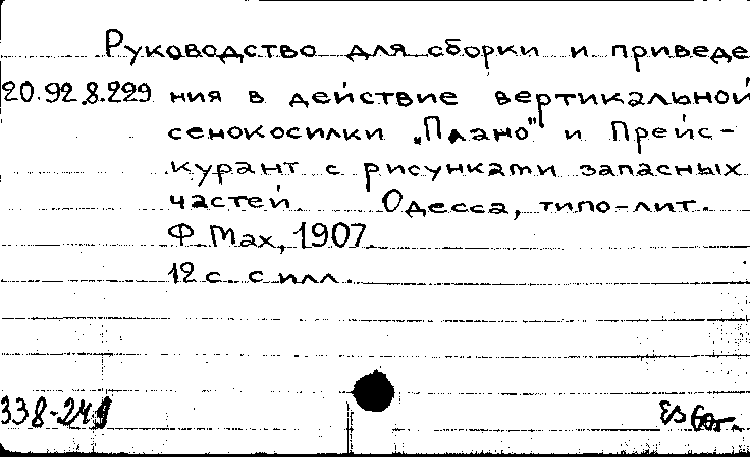 Руководство для сборки и приведе
20.92.8.229 ния в действие вертикальной
сенокосилки „Плано" и Прейс-
курант с рисунками запасных
частей. Одесса, типо-лит.
Ф. Мах, 1907.
12 с. с илл.
338-249